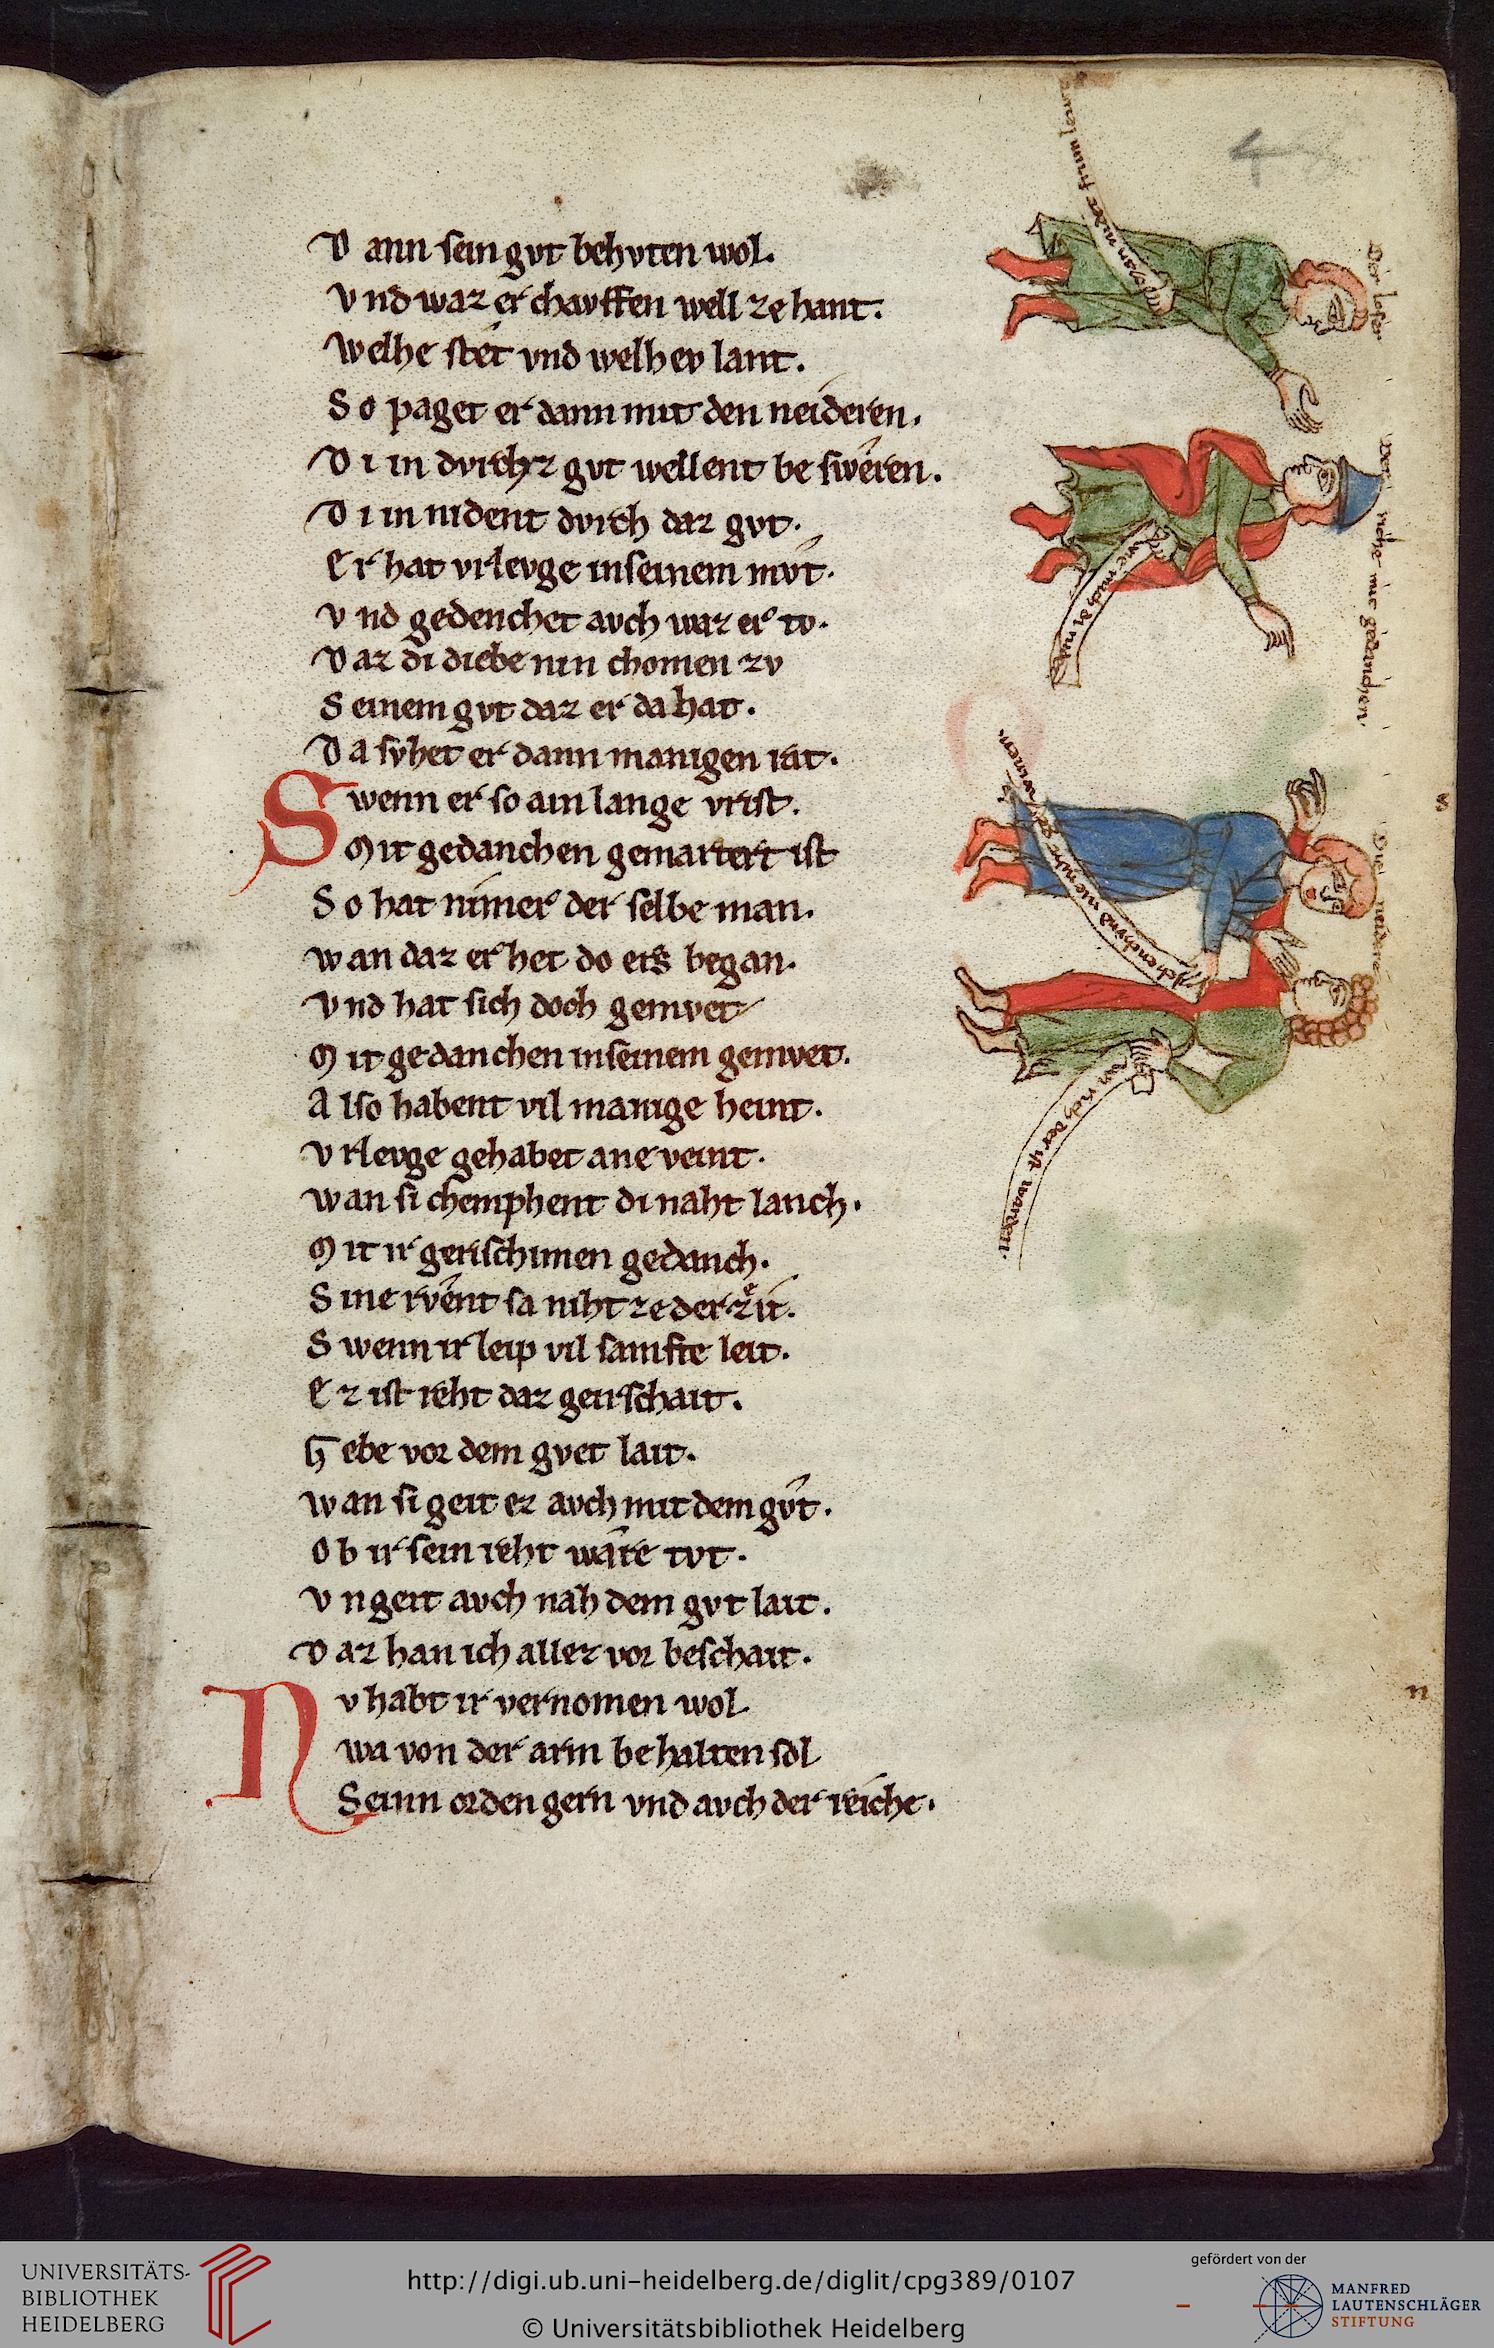 D ann sein gvt behvten wol.
V nd waz er chavffen well ze hant.
Welhe stet vnd welhev lant.
S o paget er dann mit den neideren.
D i in dvrch'z gvt wellent be sweren.
D i in nident dvrch daz gvt.
Er hat vrlevge in seinem mvt.
V nd gedenchet avch waz er tv.
D az di diebe nin chomen zv
S einem gvt daz er da hat.
D a svhet er dann manigen rat.
Swenn er so ain lange vrist.
Mit gedanchen gemartert ist
S o hat nimer der selbe man.
W an daz er het do ers began.
V nd hat sich doch gemvet
M it gedanchen in seinem gemvet.
A lso habent vil manige heint.
V rlevge gehabet ane veint.
W an si chemphent di naht lanch.
M it ir gerischimen gedanch.
S ine rvent sa niht ze der zeit.
S wenn ir leip vil samfte leit.
E z ist reht daz geirschait.
H ebe vor dem gvet lait.
W an si geit ez avch mit dem gvt.
O b ir sein reht ware tvt.
V n geit avch nah dem gvt lait.
D az han ich allez vor beschait.
Nv habt ir vernomen wol
wa von der arm behalten sol
Seinn orden gern vnd avch der reiche.
Der loser
gan nider frum
Der riche mit gedanchen.
wie mich
Die neider
gewinnen.
der ist warden.
n
UNIVERSITÄTS-
BIBLIOTHEK
HEIDELBERG
http://digi.ub.uni-heidelberg.de/diglit/cpg389/0107
© Universitätsbibliothek Heidelberg
gefördert von der
MANFRED
LAUTENSCHLÄGER
STIFTUNG